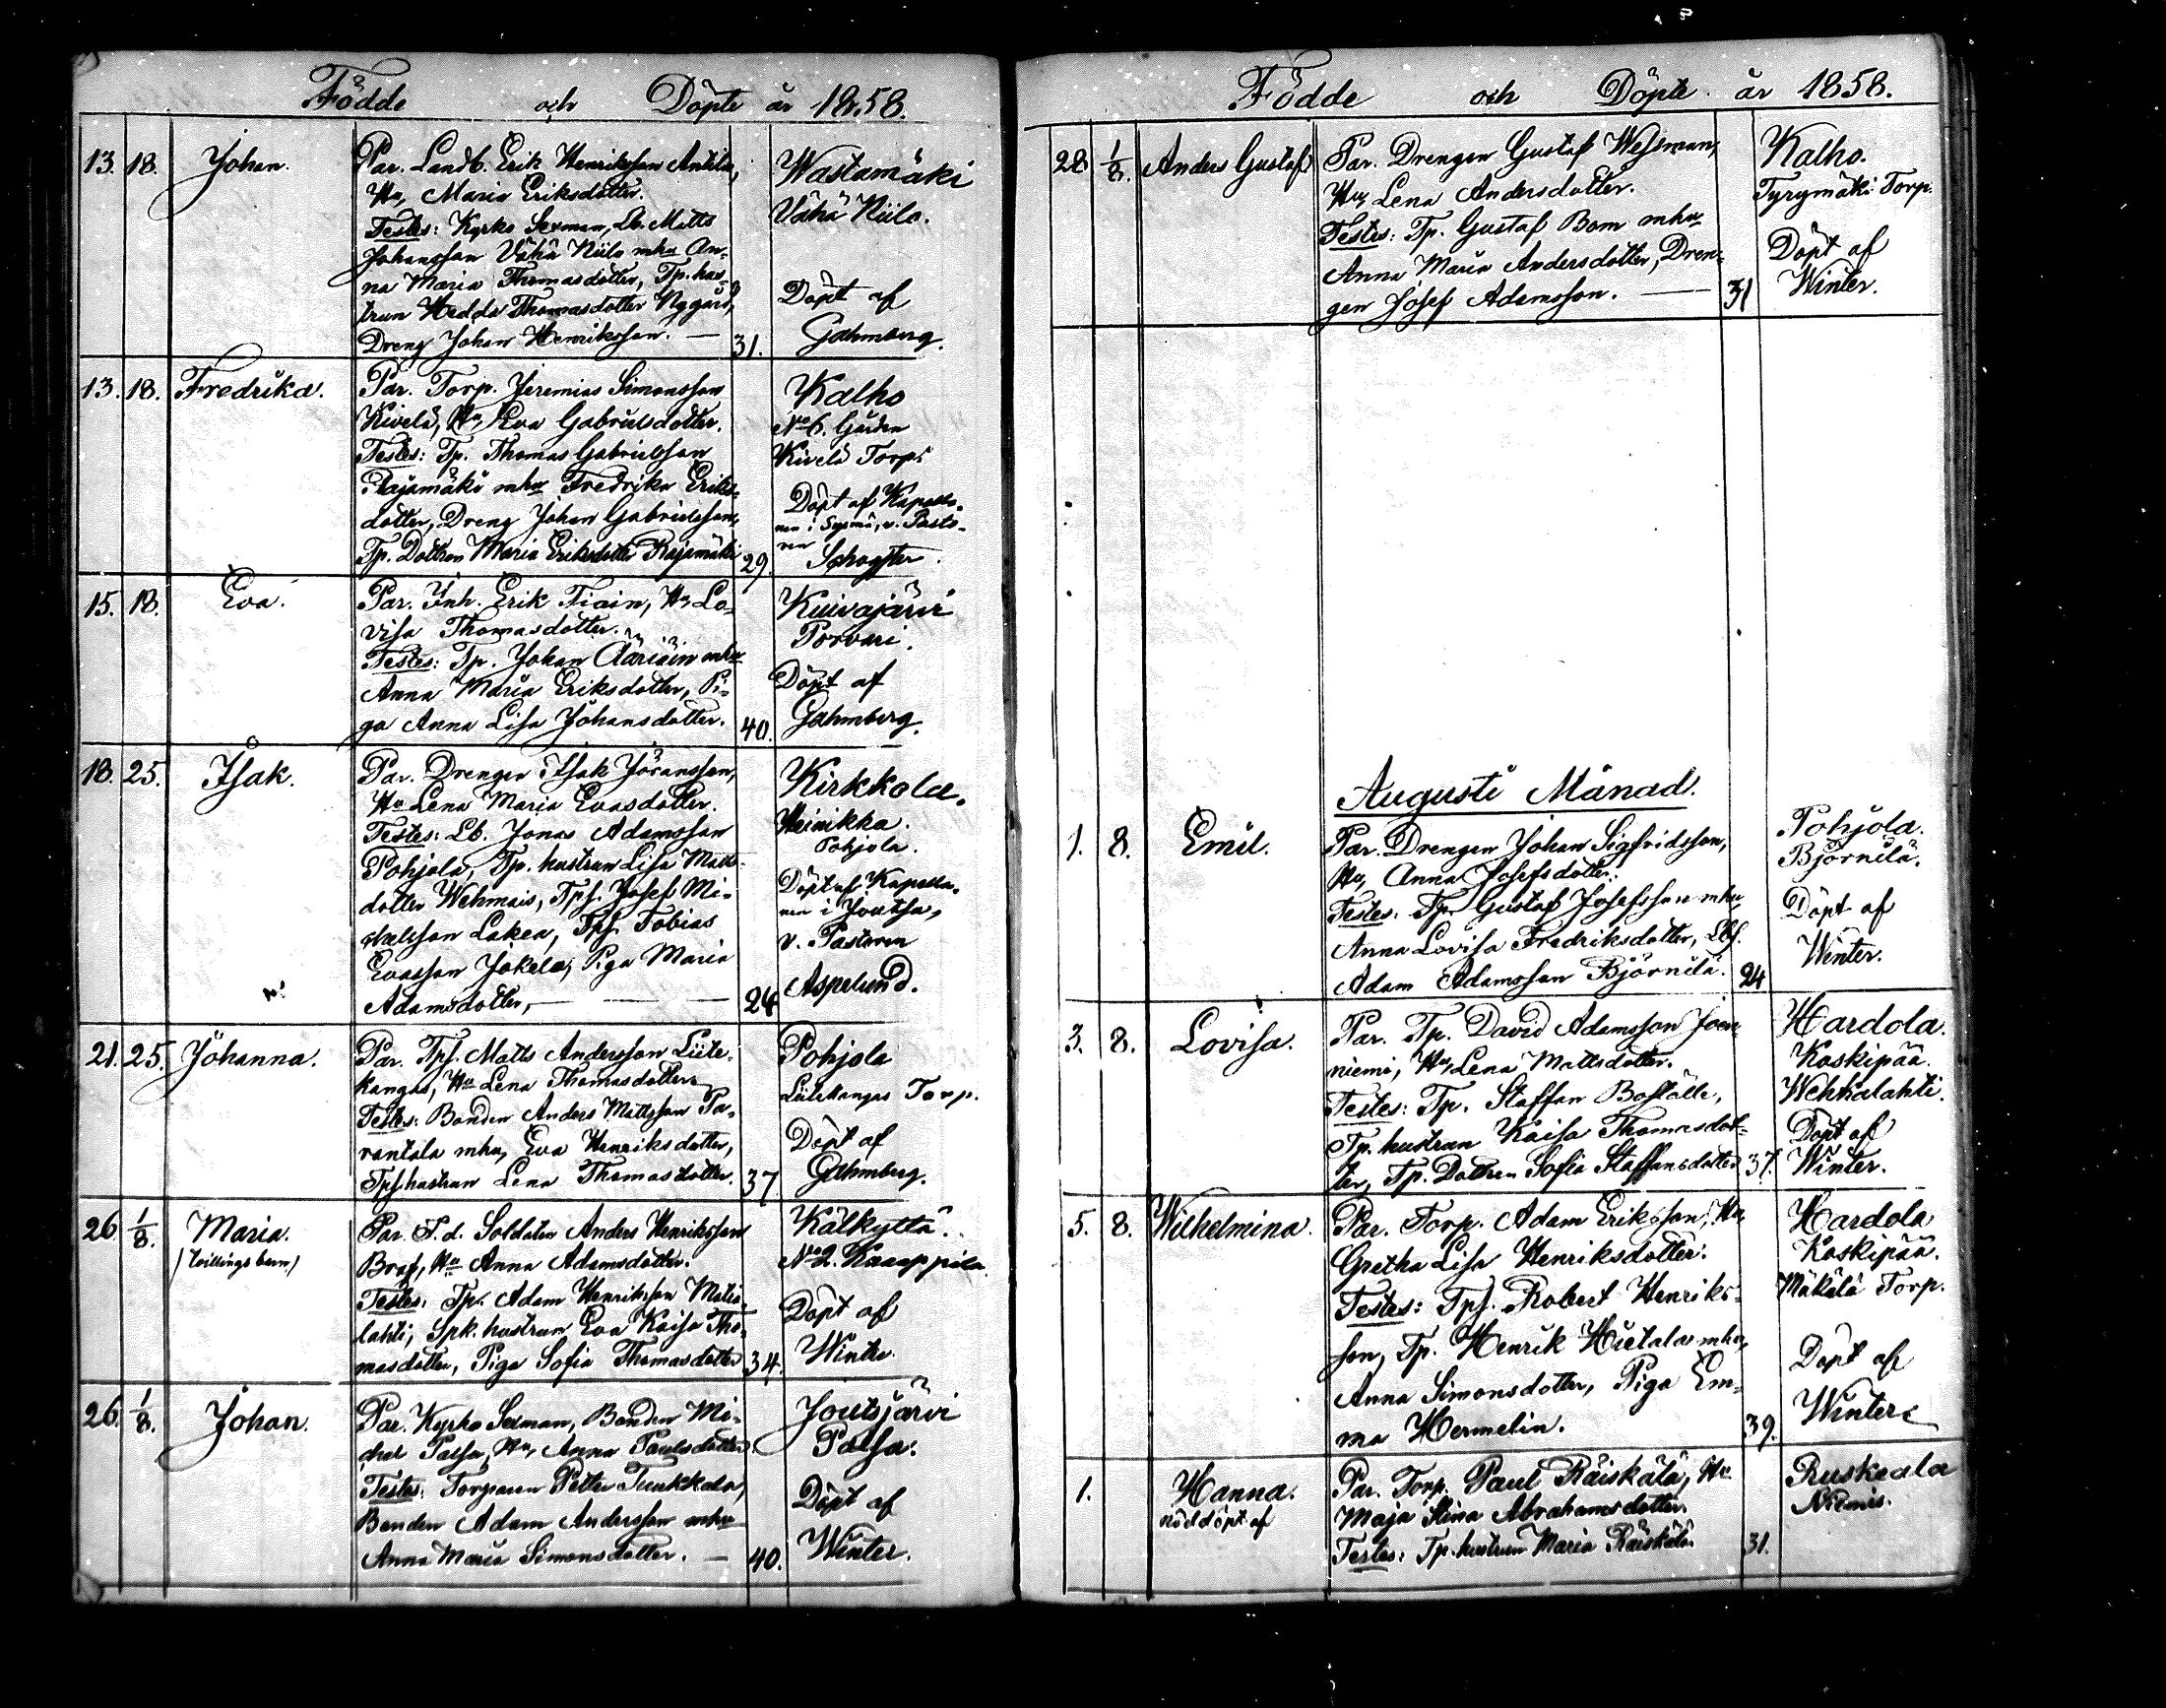 Födde och Döpte år 1858.
13. 18. Johan. Par. Landb. Erik Henriksson Antila,
Hu, Maria Eriksdotter.
Testes: Kyrko Sexman, Lb. Matts
Johansson Vähä Niilo mhu An-
na Maria Thomasdotter, Tp. hus-
trun Hedda Thomasdotter Nygård,
Dreng Johan Henriksson. — 31.
Wastamäki
Vähä Niilo.
Döpt af
Gahmberg.
13. 18. Fredrika. Par. Torp. Jeremias Simonsson
Kivelä, Hu, Eva Gabrielsdotter.
Testes: Tp. Thomas Gabrielsson
Rajamäki mhu Fredrika Eriks-
dotter, Dreng Johan Gabrielsson,
Tp. Dottren Maria Eriksdotter Rajamäki 29.
Kalho
No 6. Gården
Kivelä Torp.
Döpt af Kapella-
nen i Sysmä, v. Pasto-
ren
15. 18. Eva. Par. Inh. Erik Tiain, Hu, Lo-
visa Thomasdotter.
Testes: Tp. Johan Ääriäin mhu
Anna Maria Eriksdotter, Pi-
ga Anna Lisa Johansdotter. 40.
Kuivajärvi
Porvari.
Döpt af
Gahmberg.
18. 25. Isak. Par. Drengen Isak Göransson,
Hu Lena Maria Evasdotter.
Testes: Lb. Jonas Adamsson
Pohjola, Tp. hustrun Lisa Matts-
dotter Wehmais, Tps. Josef Mi-
chelsson Lakea, Tps. Tobias
Evasson Jokela, Piga Maria
Adamsdotter, — — 24
Kirkkola.
Heinikka.
Pohjola.
Döpt af Kapella-
nen i Joutsa,
v. Pastoren
Aspelund.
21. 25. Johanna. Par. Tps. Matts Andersson Liete-
kangas, Hu Lena Thomasdotter
Testes: Bonden Anders Mattsson Pa-
rantala mhu, Eva Henriksdotter,
Tps. hustrun Lena Thomasdotter. 37
Pohjola
Lietekangas Torp.
Döpt af
Gahmberg.
26. 1/8. Maria. Par. F. d. Soldaten Anders Henriksson
(tvillingsbarn) Braf, Hu Anna Adamsdotter.
Testes: Tp. Adam Henriksson Matis
lahti, Spk. hustrun Eva Kaisa Tho-
masdotter, Piga Sofia Thomasdotter 34.
Kälkyttä.
No 2. Kaappila.
Döpt af
Winter.
26. 1/8. Johan. Par. Kyrko Sexman, Bonden Mi-
chel Palsa, Hu, Anna Paulsdotter
Testes: Torparen Petter Tuukkala,
Bonden Adam Andersson mhu
Anna Maria Simonsdotter. — 40.
Joutsjärvi
Palsa.
Döpt af
Winter.
Födde och Döpte år 1858.
28 1/8. Anders Gustaf Par. Drengen Gustaf Wessman,
Hu, Lena Andersdotter.
Testes: Tp. Gustaf Bom mhu
Anna Maria Andersdotter, Dren-
gen Josef Adamsson. — 31
Kalho.
Tyrymäki Torp.
Döpt af
Winter.
Augusti Månad.
1. 8. Emil. Par. Drengen Johan Sigfridsson,
Hu, Anna Josefsdotter.
Testes: Tp. Gustaf Josefsson mhu,
Anna Lovisa Fredriksdotter, Lbs.
Adam Adamsson Björnilä. 24
Pohjola.
Björnilä.
Döpt af
Winter.
3. 8. Lovisa. Par. Tp. David Adamsson Joen-
niemi, Hu, Lena Mattsdotter.
Testes: Tp. Staffan Boställe,
Tp. hustrun Kaisa Thomasdot-
ter, Tp. Dottren Sofia Staffansdotter 37.
Hardola.
Koskipää.
Wehkalahti.
Döpt af
Winter.
5. 8. Wilhelmina. Par. Torp. Adam Eriksson, Hu,
Gretha Lisa Henriksdotter.
Testes: Tps. Robert Henriks-
son, Tp. Henrik Hietala mhu,
Anna Simonsdotter, Piga Em-
ma Hermelin. 39.
Hardola
Koskipää.
Mäkelä Torp.
Döpt af
Winter
1. Hanna. Par. Torp. Paul Räiskälä, Hu
nöddöpt af Maja Stina Abrahamsdotter.
Testes: Tp. hustrun Maria Räiskälä 31.
Ruskeala
Niemis.